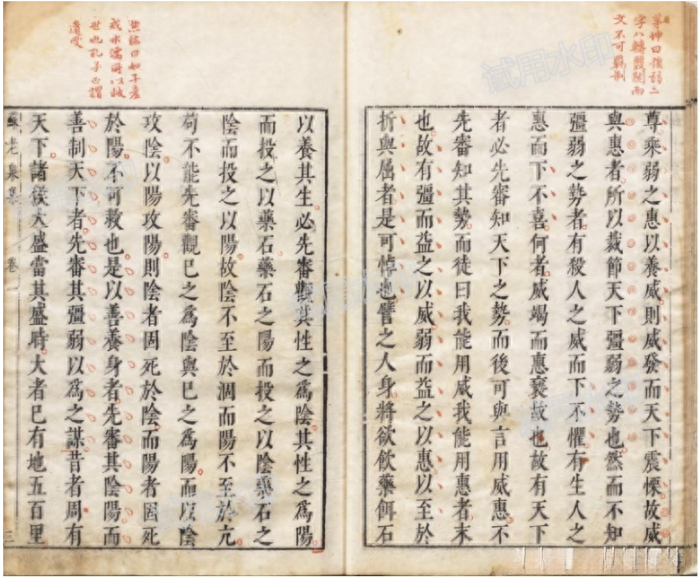 茅坤曰強弱二
字八轉而
文不可羈制
尊乘弱之惠以養威則威發而天下震慄故威
與惠者所以裁節天下彊弱之勢也然而不知
彊弱之勢者有殺人之威而下不懼有生人之
惠而下不喜何者威竭而惠褻故也故有天下
者必先審知天下之勢而後可與言用威惠不
先審知其勢而徒曰我能用威我能用惠者末
也故有彊而益之以威弱而益之以惠以至於
折與屈者是可悼也譬之人身將欲飲藥餌石
曰如子產
世也孔子亦謂
遺愛
以養其生必先審觀其性之為陰其性之為陽
而投之以藥石藥石之陽而投之以陰藥石之
陰而投之以陽故陰不至於涸而陽不至於亢
苟不能先審觀已之為陰與已之為陽而以陰
攻陰以陽攻陽則陰者固死於陰而陽者固死
於陽不可救也是以善養身者先審其陰陽而
善制天下者先審其彊弱以為之謀昔者周有
天下諸侯太盛當其盛時大者已有地五百里
蘇老泉集 卷一 三
试用水印